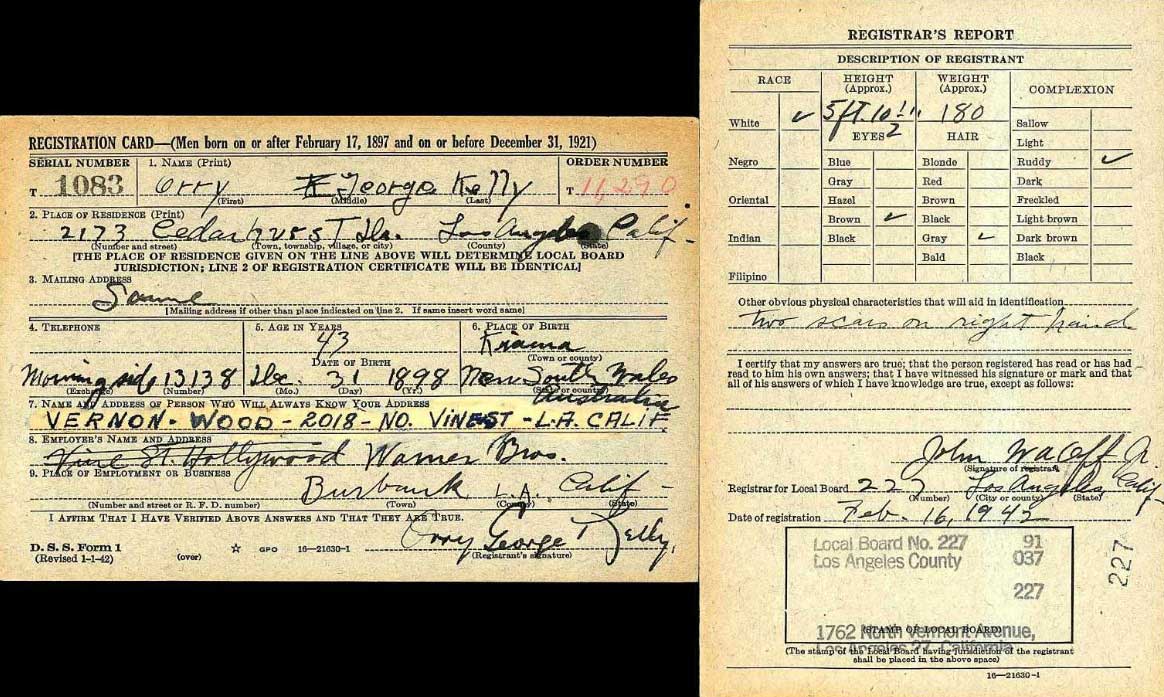 REGISTRATION CARD—(Men born on or after February 17, 1897 and on or before December 31, 1921)
SERIAL NUMBER
1. NAME (Print)
ORDER NUMBER
T 1083
Orry George Kelly
T 11290
(First) (Middle) (Last)
2. PLACE OF RESIDENCE (Print)
2173 Cedarhurst Dr. Los Angeles Calif-
(Number and street) (Town, township, village, or city) (County) (State)
[THE PLACE OF RESIDENCE GIVEN ON THE LINE ABOVE WILL DETERMINE LOCAL BOARD
JURISDICTION; LINE 2 OF REGISTRATION CERTIFICATE WILL BE IDENTICAL]
3. MAILING ADDRESS
Same
[Mailing address if other than place indicated on line 2. If same insert word same]
4. TELEPHONE
5. AGE IN YEARS
6. PLACE OF BIRTH
43
Kiama
DATE OF BIRTH
(Town or county)
Morningside 13138
Dec. 31 1898
New South Wales
(Exchange) (Number)
(Mo.) (Day) (Yr.)
(State or country)
Australia
7. NAME AND ADDRESS OF PERSON WHO WILL ALWAYS KNOW YOUR ADDRESS
VERNON. WOOD - 2018 - NO. VINE ST - L.A. CALIF.
8. EMPLOYER'S NAME AND ADDRESS
Vine St. Hollywood Warner Bros.
9. PLACE OF EMPLOYMENT OR BUSINESS
Burbank L.A. Calif-
(Number and street or R. F. D. number) (Town) (County) (State)
I AFFIRM THAT I HAVE VERIFIED ABOVE ANSWERS AND THAT THEY ARE TRUE.
Orry George Kelly,
D. S. S. Form 1
(Revised 1-1-42)
(over)
GPO 16—21630-1
(Registrant's signature)
REGISTRAR'S REPORT
DESCRIPTION OF REGISTRANT
RACE
HEIGHT
(Approx.)
WEIGHT
(Approx.)
COMPLEXION
White
5 ft. 10 1/2 "
180
Sallow
EYES
HAIR
Light
Negro
Blue
Blonde
Ruddy
Gray
Red
Dark
Oriental
Hazel
Brown
Freckled
Brown
Black
Light brown
Indian
Black
Gray
Dark brown
Bald
Black
Filipino
Other obvious physical characteristics that will aid in identification
two scars on right hand
I certify that my answers are true; that the person registered has read or has had
read to him his own answers; that I have witnessed his signature or mark and that
all of his answers of which I have knowledge are true, except as follows:
John
(Signature of registrar)
Registrar for Local Board 227 Los Angeles, Calif-
(Number) (City or county) (State)
Date of registration Feb. 16, 1942
Local Board No. 227 91
Los Angeles County 037
227
227
(STAMP OF LOCAL BOARD)
1762 North Vermont Avenue,
Los Angeles 27, California
(The stamp of the Local Board having jurisdiction of the registrant
shall be placed in the above space)
16—21630-1